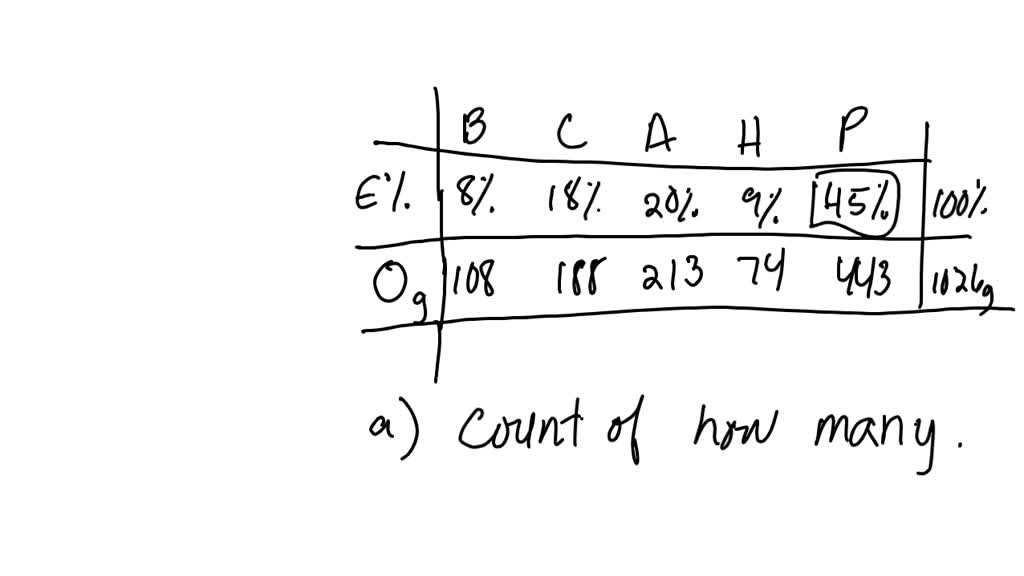 B C A H P
E% 8% 18% 20% 9% 45% 100%
Og 108 188 213 74 443 1026g
a) Count of how many.